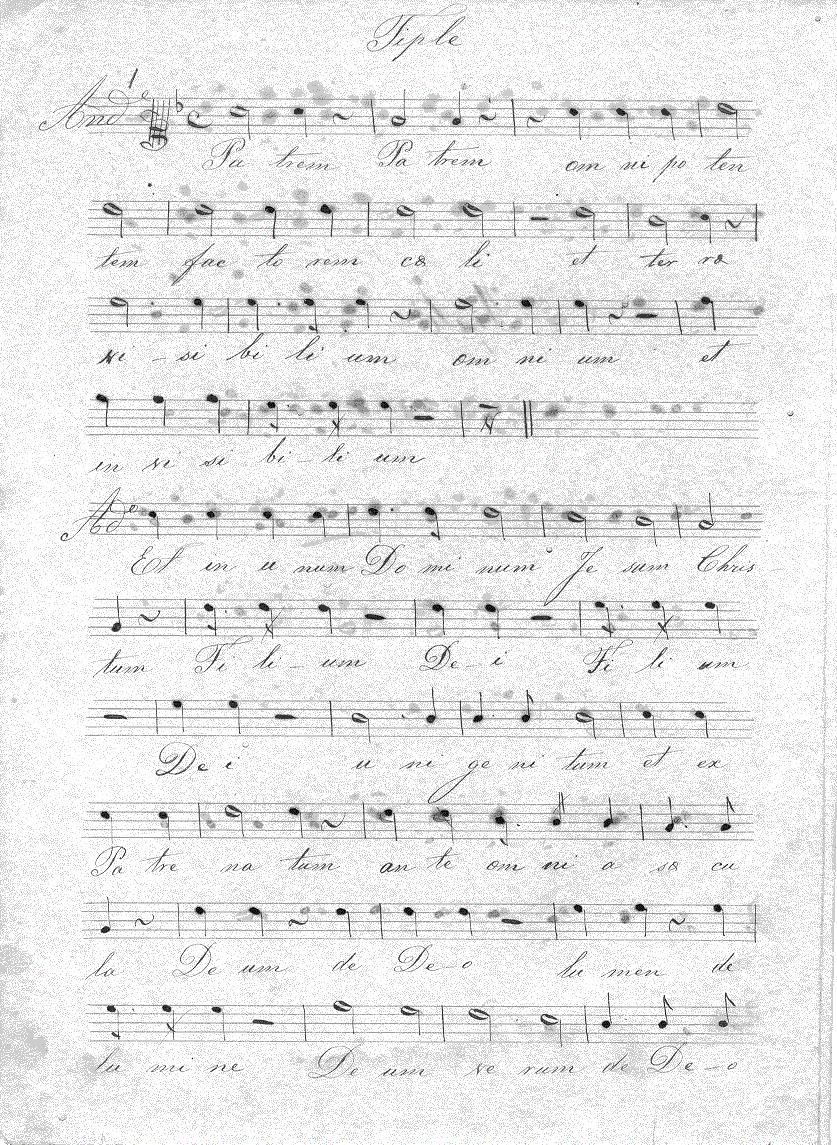 Tiple
And.e
Pa trem Pa trem om ni po ten
tem fac to rem cœ li et ter ræ
vi - si bi li um om ni um et
in vi si bi - li um
Ad.o
Et in u num Do mi num Je sum Chris -
tum Fi li - um De - i Fi li um
De i u ni ge ni tum et ex
Pa tre na tum an te om ni a sæ cu
la De um de De - o lu men de
lu mi ne De um ve rum de De - o